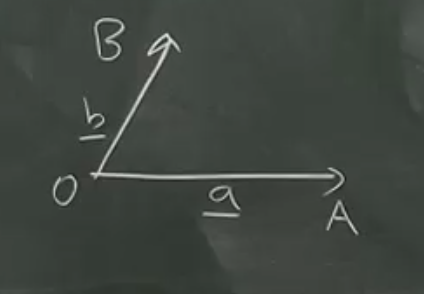 B
b
O
a
A